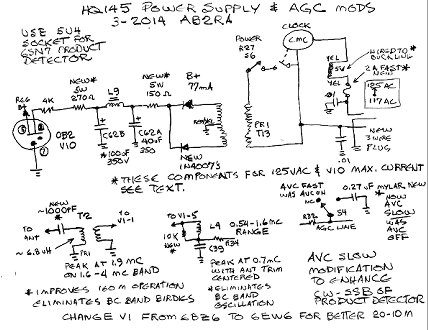 HQ145 POWER SUPPLY & AGC MODS
3-2014 AB2RA
USE 5U4
SOCKET FOR
6SN7 PRODUCT
DETECTOR
CLOCK
C.MC
POWER
R27
S6
YEL
YEL
WIRED TO
BUCK LINE
2A FAST*
NEW
125AC
117AC
NEW
3 WIRE
PLUG
.01
REG
B+
4K
NEW*
5W
270Ω
L9
NEW*
5W
150Ω
B+
77mA
0B2
V10
C62B
*100µF
350V
C62A
40µF
350
NEW
1N4007's
PRI
T13
*THESE COMPONENTS FOR 125VAC & V10 MAX. CURRENT
SEE TEXT.
NEW
~1000pF*
T2
TO
V1-1
TO
ANT
~6.8uH
PRI
PEAK AT 1.9 MC
ON 1.6-4 MC BAND
*IMPROVES 160M OPERATION
ELIMINATES BC BAND BIRDIES
TO V1-5
L4
0.54-1.6MC
RANGE
10K
NEW*
C99
R34
PEAK AT 0.7MC
WITH ANT TRIM
CENTERED
*ELIMINATES
BC BAND
OSCILLATION
AVC FAST
WAS AVC ON
NC
0.27uF MYLAR NEW
S4
AGC LINE
*NOW
AVC
SLOW
WAS
AVC
OFF
AVC SLOW
MODIFICATION
TO ENHANCE
CW-SSB OF
PRODUCT DETECTOR
CHANGE V1 FROM 6BZ6 TO 6EW6 FOR BETTER 30-10M